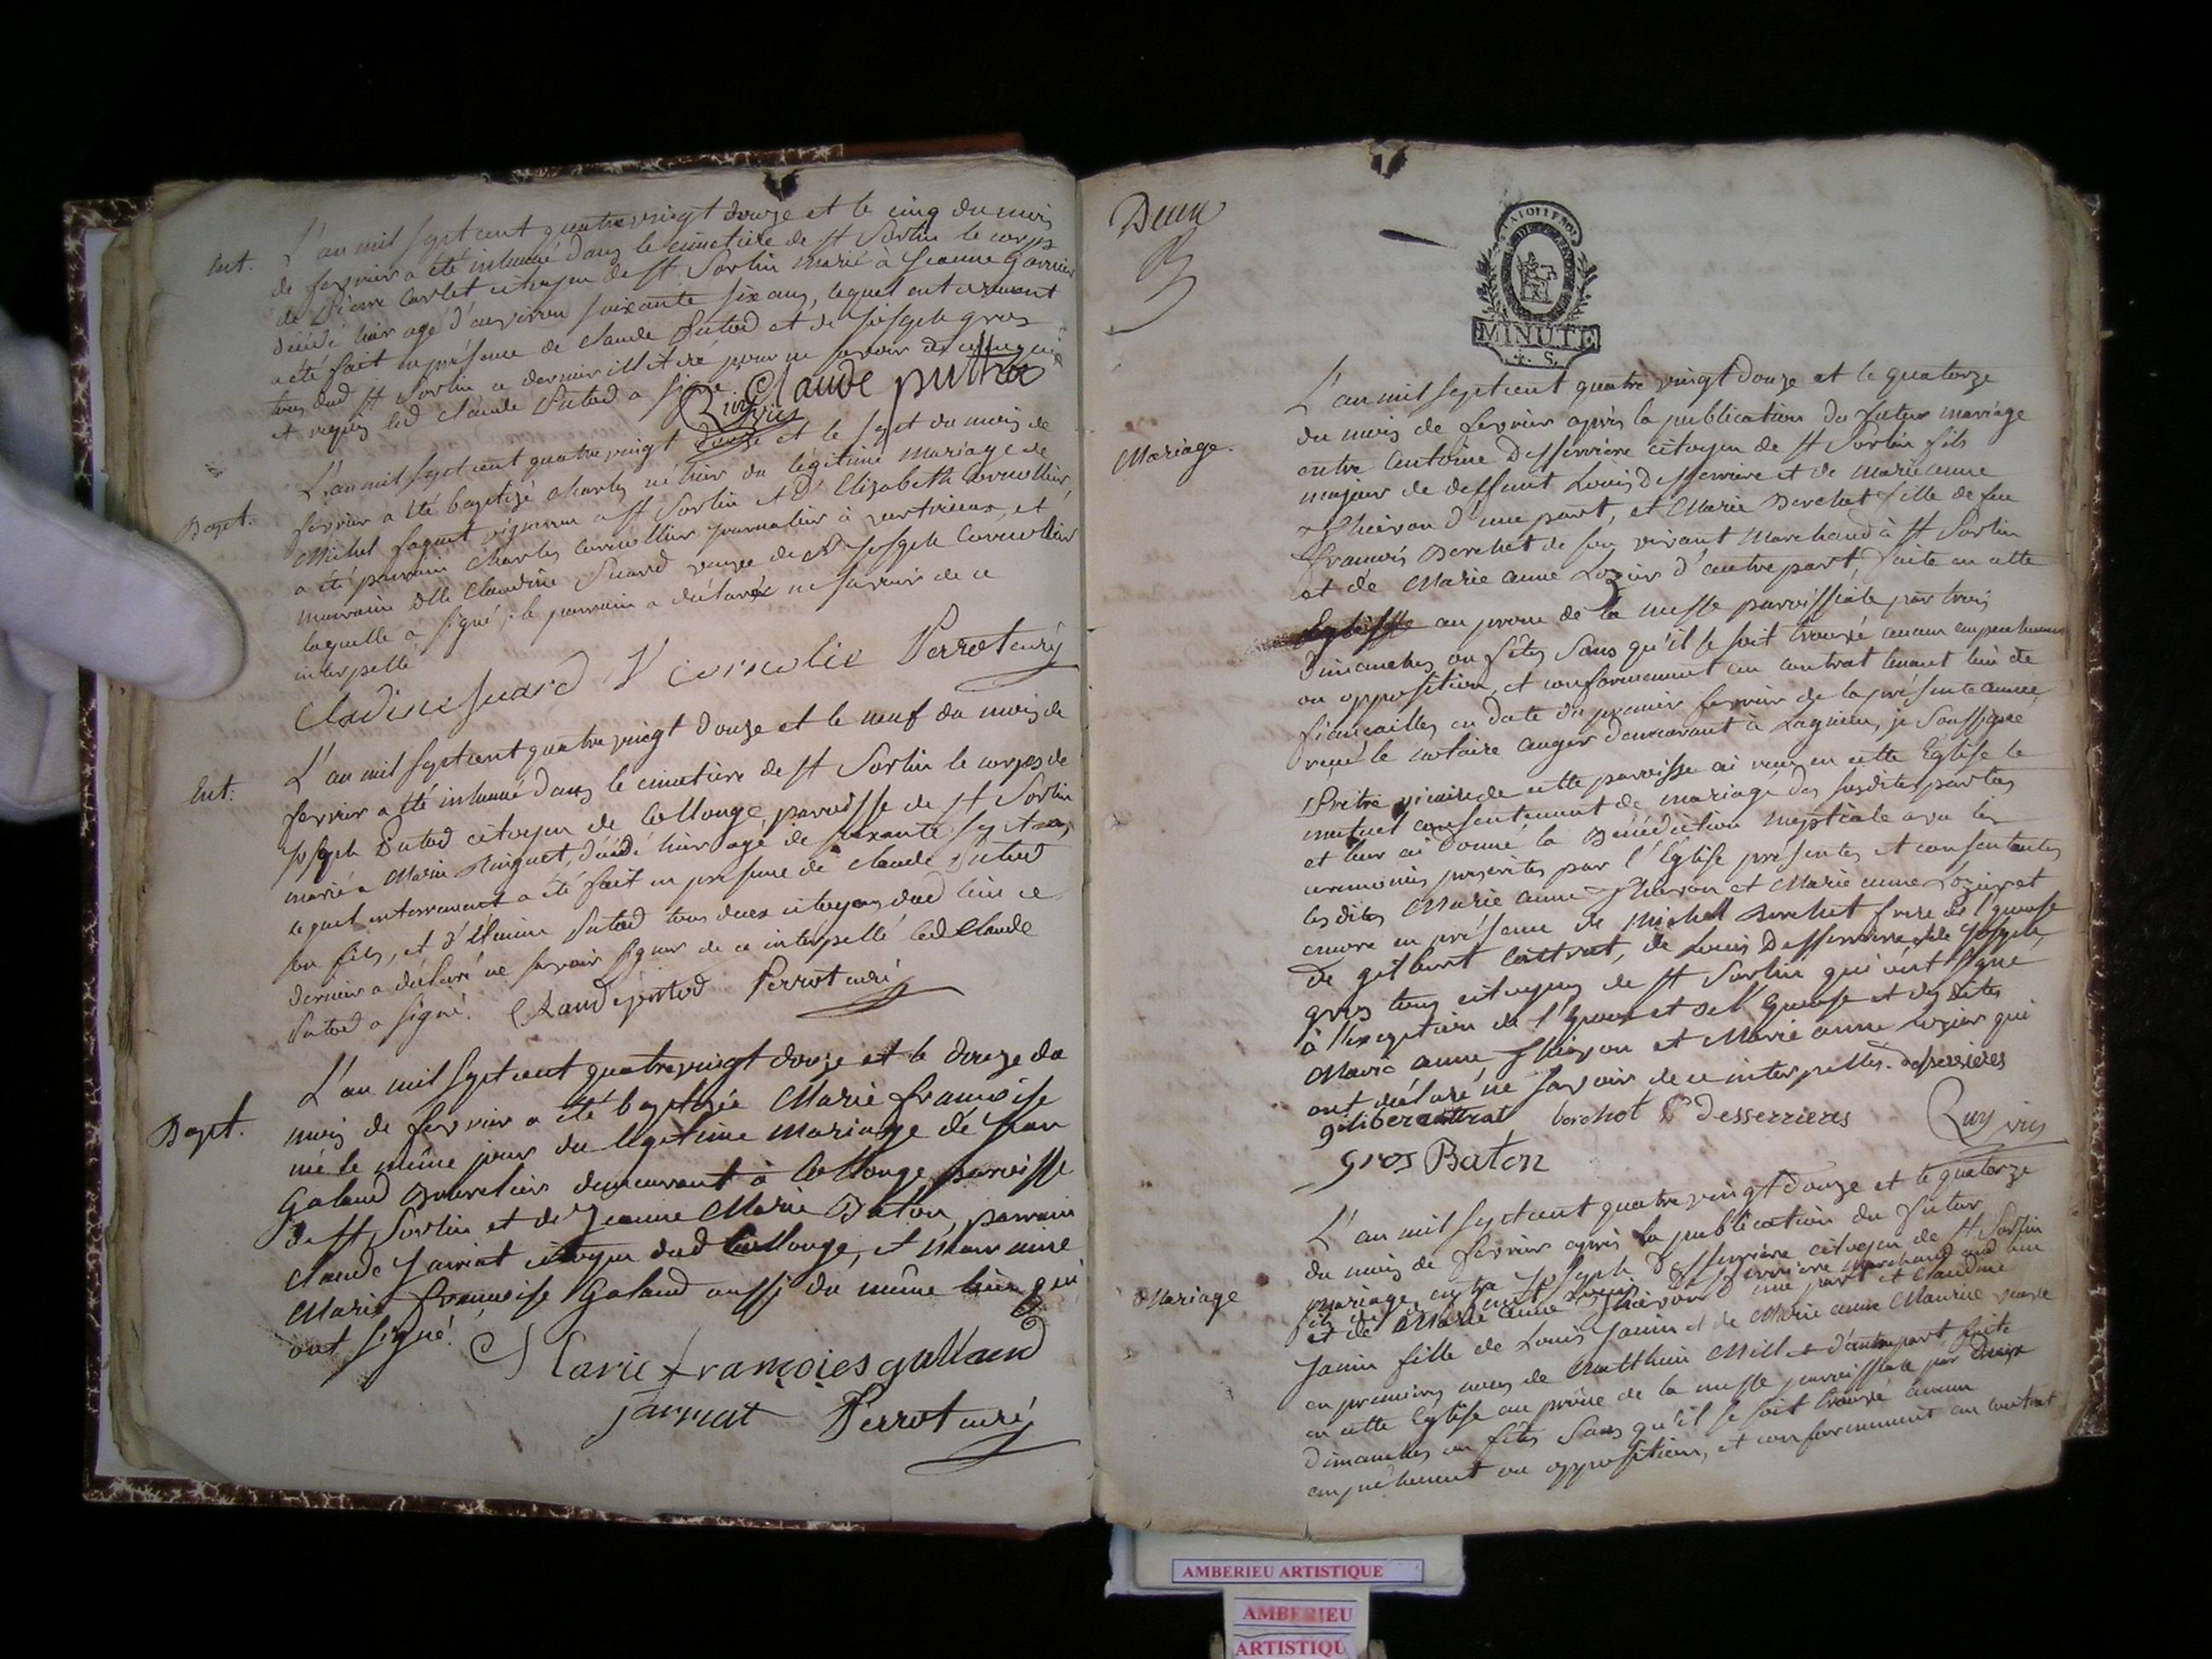 Ent.
L'an mil sept cent quatre vingt douze et le cinq du mois
de fevrier a été inhumé dans le cimetiére de St Sorlin le corps
de Pierre Carlet citoyen de St Sorlin marié à Jeanne Garnier
décédé hier agé d'environ soixante six ans, lequel enterrement
a été fait en présence de claude Putod et de joseph gros
tous dud St Sorlin ce dernier illitéré pour ne savoir de ce enquis
et requis led Claude Putod a signé
Claude puttod
Quy vic
Bapt.
L'an mil sept cent quatre vingt douze et le sept du mois de
fevrier a été baptizé Charles né hier du légitime mariage de
Michel faguet vigneron a St Sorlin et d' Elizabeth Cornollier
a été parrain Charles Cornollier journalier à vertrieux, et
marraine Dlle Claudine Suard veuve de Sr joseph Cornollier
laquelle a signé; le parrain a déclaré ne savoir de ce
interpellé
Cladine suard V cornolie Perrot curé
Ent.
L'an mil sept cent quatre vingt douze et le neuf du mois de
fevrier a été inhumé dans le cimetiere de St Sorlin le corps de
joseph Putod citoyen de Collonge, paroisse de St Sorlin
marié a Marie Ringuet, décédé hier agé de soixante sept ans
lequel enterrement a été fait en présence de claude Putod
son fils, et d'Etienne Putod tous deux citoyens dud lieu ce
dernier a déclaré ne savoir signer de ce interpellé led Claude
Putod a signé. Claude putod Perrot curé
Bapt.
L'an mil sept cent quatre vingt douze et le douze du
mois de fevrier a été baptizée Marie françoise
née le même jour du légitime mariage de jean
Galand Bourelier demeurant à Collonge, paroisse
de St Sorlin et de Jeanne Marie Baton, parrain
claude jarniat citoyen dud Collonge, et marraine
Marie françoise Galand aussi du même lieu qui
ont signé.
Marie françoies galland
jarniat Perrot curé
Deux
MINUTE
4. S.
Mariage.
L'an mil sept cent quatre vingt douze et le quatorze
du mois de fevrier après la publication du futur mariage
entre Antoine Desserriére citoyen de St Sorlin fils
majeur de deffunt Louis Desserriere et de marieanne
Thievon d'une part, et Marie Berchet fille de feu
françois Berchet de son vivant Marchand à St Sorlin
et de Marie anne Lozier d'autre part, faite en cette
Eglisse au prone de la messe paroissiale par trois
dimanches ou fêtes sans qu'il se soit trouvé aucun empechement
ou opposition, et conformement au contrat tenant lieu de
fiançailles en date du premier fevrier de la présente année,
reçu le notaire auger demeurant à Lagnieu, je soussigné
Prêtre vicaire de cette paroisse ai reçu en cette Eglise le
mutuel consentement de mariage des susdites parties
et leur ai donné la Bénédiction nuptiale avec les
ceremonies prescrites par l'Eglise présentes et consentantes
les dites Marie anne Thievon et Marie anne Lozier et
encore en présence de michel Berchet frere de l'épouse
de gilbert Cottrat, de Louis Desserriere, de joseph
gros tous citoyens de St Sorlin qui ont signé
à l'exception de l'Epoux et de l'Epouse et des dites
Marie anne Thievon et Marie anne Lozier qui
ont déclaré ne savoir de ce interpellés. desserieres
giliber cottrat berchet L desserrieres Quy vic
gros Baton
Mariage
L'an mil sept cent quatre vingt douze et le quatorze
du mois de fevrier après la publication du futur
mariage entre joseph Desserriére citoyen de St Sorlin
fils de deffunt Louis Desserriere marchand aud lieu
et de Marie anne Thievon d'une part et Claudine
Janin fille de Louis Janin et de Marie anne Maurice veuve
en premieres noces de Matthieu Millet d'autre part, faite
en cette Eglise au prône de la messe paroissiale par trois
dimanches ou fêtes sans qu'il se soit trouvé aucun
empechement ou opposition, et conformement au contrat
AMBERIEU ARTISTIQUE
AMBERIEU
ARTISTIQU